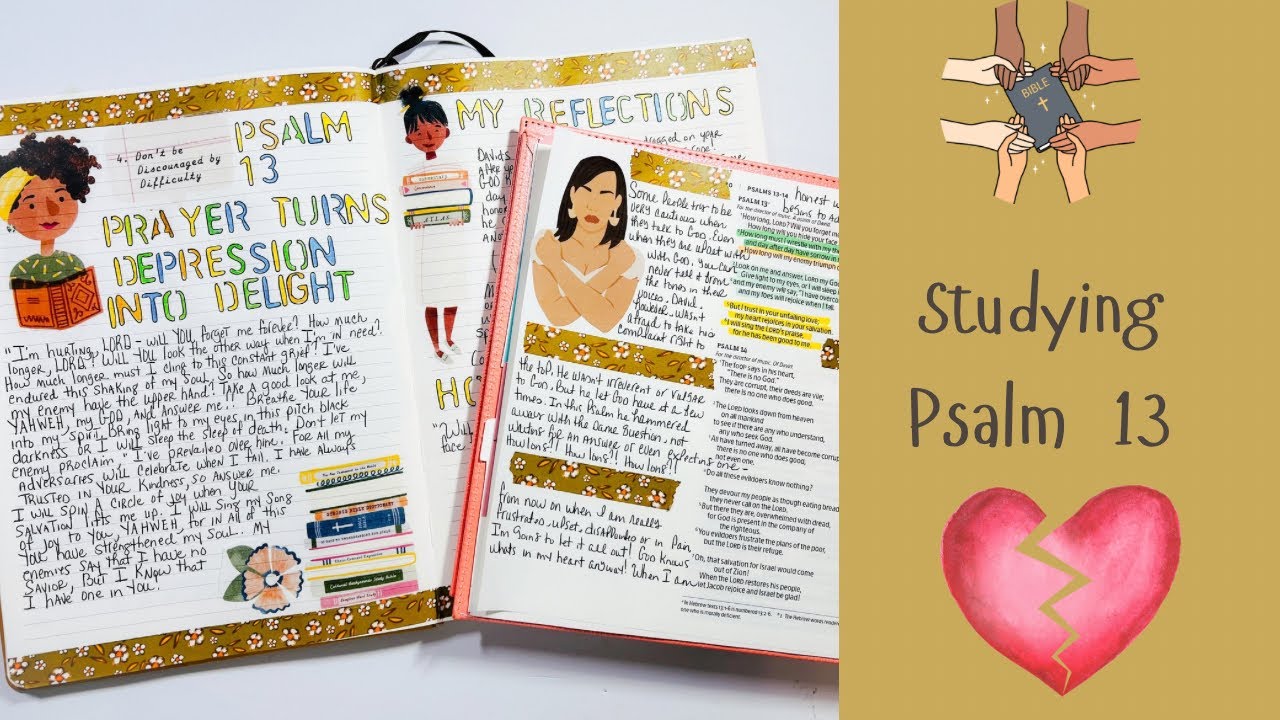 PSALM
13
4. Don't be
Discouraged by
Difficulty
PRAYER TURNS
DEPRESSION
INTO DELIGHT
"I'm hurting, LORD - will YOU forget me forever? How much
longer, LORD? Will YOU look the other way when I'm in need?
How much longer must I cling to this constant grief? I've
endured this shaking of my Soul. So how much longer will
my enemy have the upper hand? Take a good look at me,
YAHWEH, my GOD, and answer me!!! Breathe your life,
into my Spirit. Bring light to my eyes in this pitch black
darkness or I will sleep the sleep of death. Don't let my
enemy proclaim "I've prevailed over him." For all my
adversaries will celebrate when I fall. I have always
TRUSTED IN YOUR Kindness, so Answer me.
I will spin a circle of joy when your
salvation lifts me up. I will sing my song
of joy to you, YAHWEH, for in all of this
you have strengthened my soul. My
enemies say that I have no
savior, but I know that
I have one in you.
MY REFLECTIONS
ATLAS
HO
"Will
face
Some people try to be
very cautious when
they talk to God. Even
when they are upset with
with God, you can
never tell it from
the tones in their
voices. David
wasn't
afraid to take his
complaint right to
the top. He wasn't irreverent or vulgar
to God. But he let God have it a few
times. In this Psalm he hammered
away with the same question, not
waiting for an answer or even expecting one -
How long!! How long!! How long!!
From now on when I am really
frustrated, upset, disappointed or in pain
I'm going to let it all out! God knows
whats in my heart anyway! When I am
honest w
begins to
PSALMS 13-14
PSALM 13
For the director of music. A psalm of David.
How long, LORD? Will you forget me
How long will you hide your face
How long must I wrestle with my th
and day after day have sorrow in
How long will my enemy triumph o
Look on me and answer, LORD my God.
Give light to my eyes, or I will sleep i
and my enemy will say, "I have overco
and my foes will rejoice when I fall.
But I trust in your unfailing love;
my heart rejoices in your salvation.
I will sing the LORD's praise,
for he has been good to me.
PSALM 14
For the director of music. Of David.
The fool says in his heart,
"There is no God."
They are corrupt, their deeds are vile;
there is no one who does good.
The LORD looks down from heaven
on all mankind
to see if there are any who understand,
any who seek God.
All have turned away, all have become corrup
there is no one who does good,
not even one.
Do all these evildoers know nothing?
They devour my people as though eating bread
they never call on the LORD.
But there they are, overwhelmed with dread,
for God is present in the company of
the righteous.
You evildoers frustrate the plans of the poor,
but the LORD is their refuge.
Oh, that salvation for Israel would come
out of Zion!
When the LORD restores his people,
let Jacob rejoice and Israel be glad!
BIBLE
Studying
Psalm 13